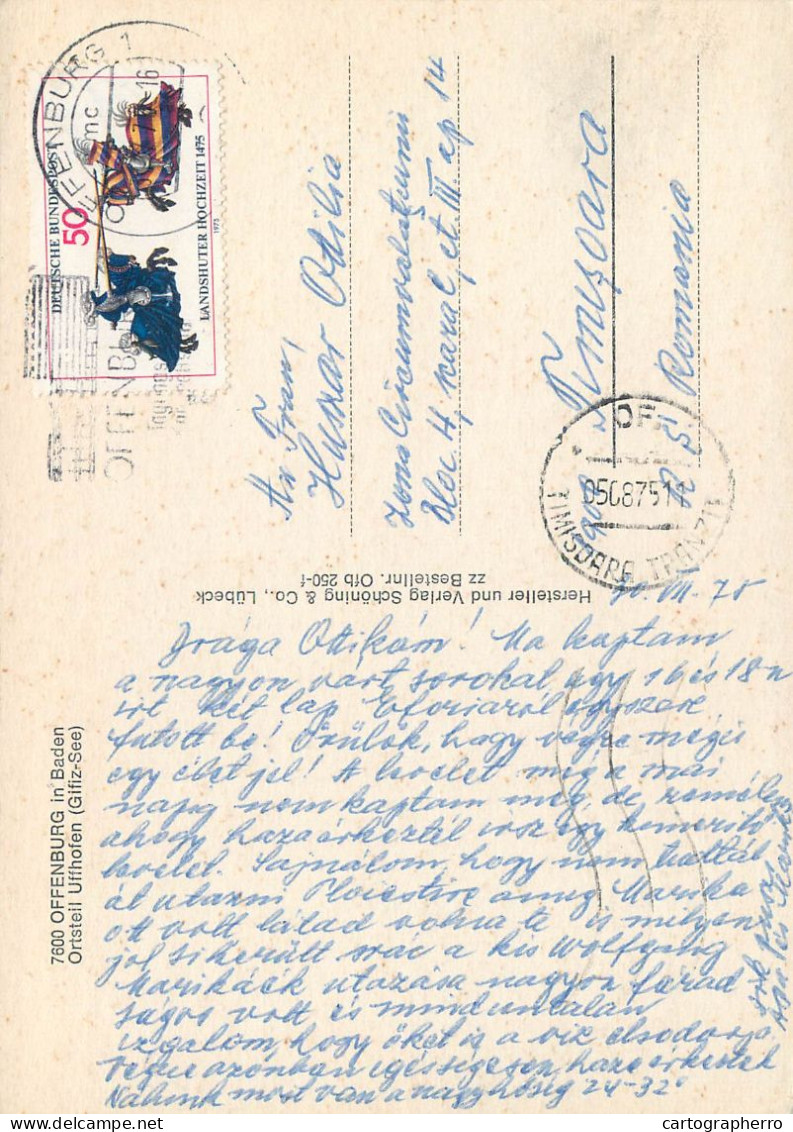 DEUTSCHE BUNDESPOST
50
LANDSHUTER HOCHZEIT 1475
1975
OFFENBURG 1
mc
16
OFFENB
An Frau,
Huszar Otilia
Zona Circumvalațiunii
Bloc H, scara C, et. III ap 14
1900 Timișoara
R S Romania
OF.
05087511
TIMISOARA TRANZIT
Hersteller und Verlag Schöning & Co., Lübeck
zz Bestellnr. Ofb 250-f
7600 OFFENBURG in Baden
Ortsteil Uffhofen (Gifiz-See)
VII. 75
Drága Ottikám! Ma kaptam
a nagyon várt sorokat, egy 16 és 18-n
írt két lap Eforiaról egyszere
futott be! Örülök, hogy végre mégis
egy életjel! A levelet még a mai
napig nem kaptam meg, de remélem
ahogy hazaérkeztél írsz egy kimerítő
levelet. Sajnálom, hogy nem tudtál
át utazni Ploiestire amig Marika
ott volt látad volna te is milyen
jól sikerült srác a kis Wolfgang
Marikáék utazása nagyon fárad
ságos volt és minduntalan
izgalom, hogy őket is a víz elsodorja,
végre azonban egésségesen hazaérkeztek
Nálunk most van a nagy hőség 24-32°
sok puszi
cartographerro